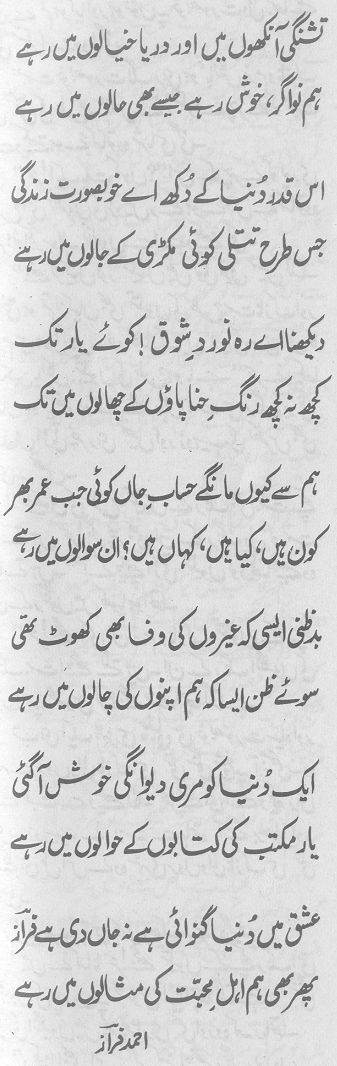 تشنگی آنکھوں میں اور دریا خیالوں میں رہے
ہم نوا گر، خوش رہے جیسے بھی حالوں میں رہے
اس قدر دُنیا کے دُکھ اے خوبصورت زندگی
جس طرح تتلی کوئی مکڑی کے جالوں میں رہے
دیکھنا اے رہ نوردِ شوق! کوئے یار تک
کچھ نہ کچھ رنگِ حنا پاؤں کے چھالوں میں تک
ہم سے کیوں مانگے حسابِ جاں کوئی جب عمر بھر
کون ہیں، کیا ہیں، کہاں ہیں؟ ان سوالوں میں رہے
بدظنی ایسی کہ غیروں کی وفا بھی کھوٹ تھی
سوئے ظن ایسا کہ ہم اپنوں کی چالوں میں رہے
ایک دُنیا کو مری دیوانگی خوش آ گئی
یار مکتب کی کتابوں کے حوالوں میں رہے
عشق میں دُنیا گنوائی ہے نہ جاں دی ہے فرازؔ
پھر بھی ہم اہلِ محبّت کی مثالوں میں رہے
احمد فرازؔ